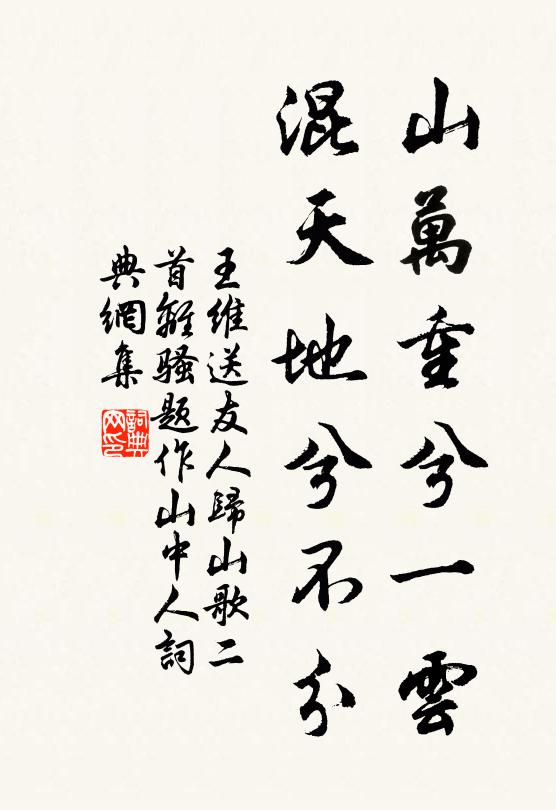 山萬重兮一雲
混天地兮不分
王維送友人歸山歌二
首離騷題作山中人詞
典網集
詞典網印